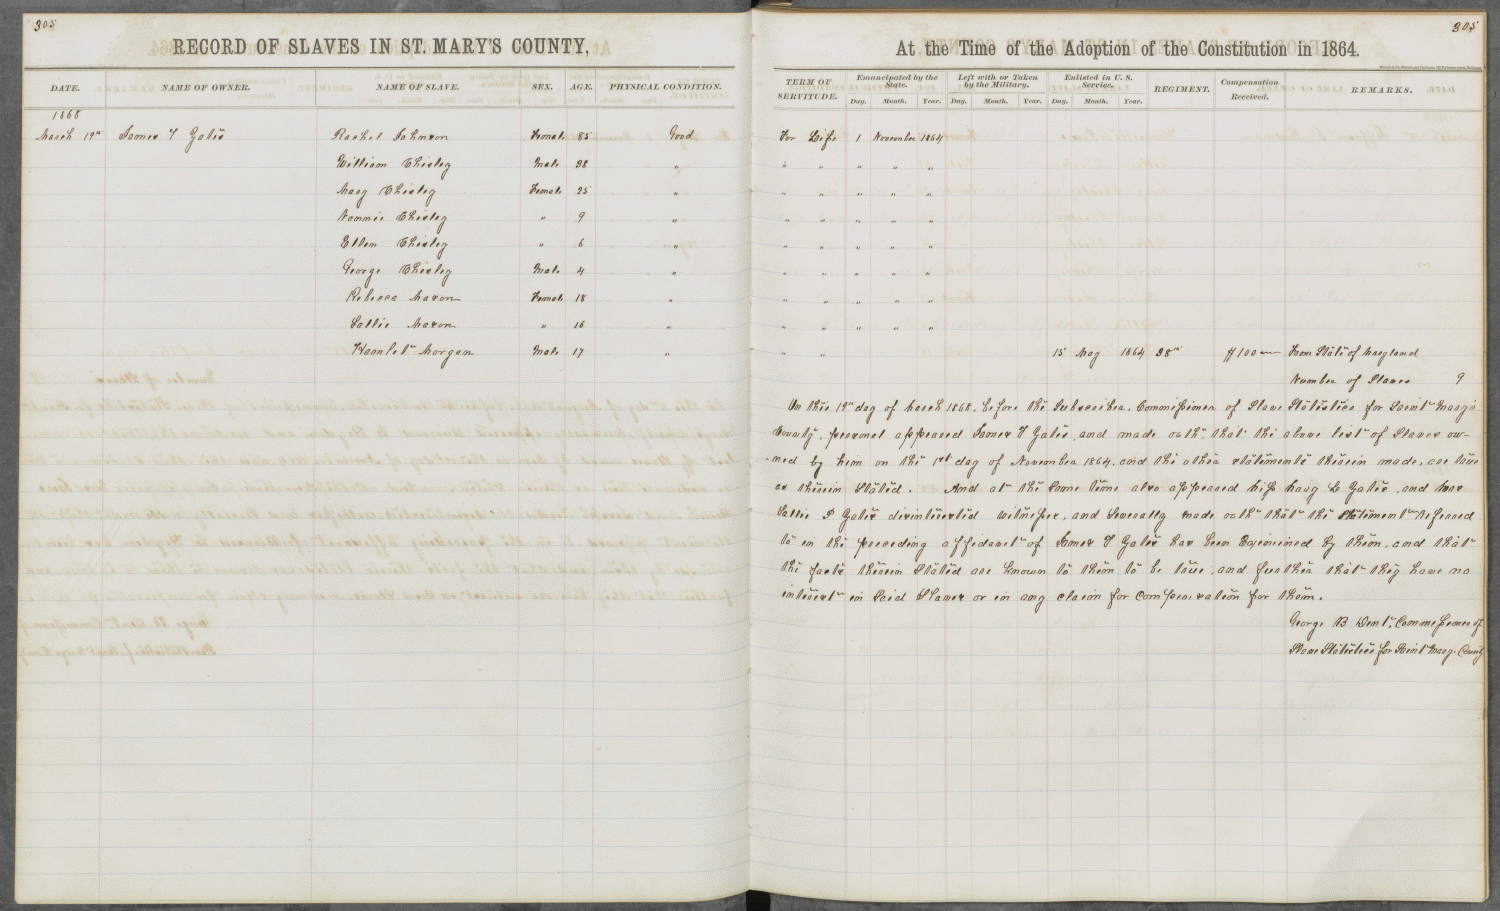 305
RECORD OF SLAVES IN ST. MARY'S COUNTY,
DATE. NAME OF OWNER. NAME OF SLAVE. SEX. AGE. PHYSICAL CONDITION.
1868
March 19th James T Yates Rachel Johnson Female 85 Good
William Chisley Male 38 "
Mary Chisley Female 25 "
Nannie Chisley " 9 "
Ellen Chisley " 6 "
George Chisley Male 4 "
Rebecca Mason Female 18 "
Sallie Mason " 16 "
Hamlet Morgan Male 17 "
305
At the Time of the Adoption of the Constitution in 1864.
TERM OF SERVITUDE. Emancipated by the State. Left with or Taken by the Military. Enlisted in U. S. Service. REGIMENT. Compensation Received. REMARKS.
Day. Month. Year. Day. Month. Year. Day. Month. Year.
For Life 1 November 1864
" " " " "
" " " " "
" " " " "
" " " " "
" " " " "
" " " " "
" " " " "
" " 15 May 1864 38th $100 From State of Maryland
Number of Slaves 9
On this 19th day of March 1868, before the Subscriber, Commissioner of Slave Statistics for Saint Mary's
County, personal appeared James T Yates, and made oath, that the above list of Slaves ow-
ned by him on the 1st day of November 1864, and the other statements therein made, are true
as therein Stated. And at the same time also appeared Miss Mary L Yates, and
Sallie P Yates disinterested witnesses, and Severally made oath that the Statement Referred
to in the preceding affidavit of James T Yates has been Examined by them, and that
the facts therein Stated are known to them to be true, and further that they have no
interest in Said Slaves or in any claim for compensation for them.
George B Dent, Commissioner of
Slave Statistics for Saint Mary's County